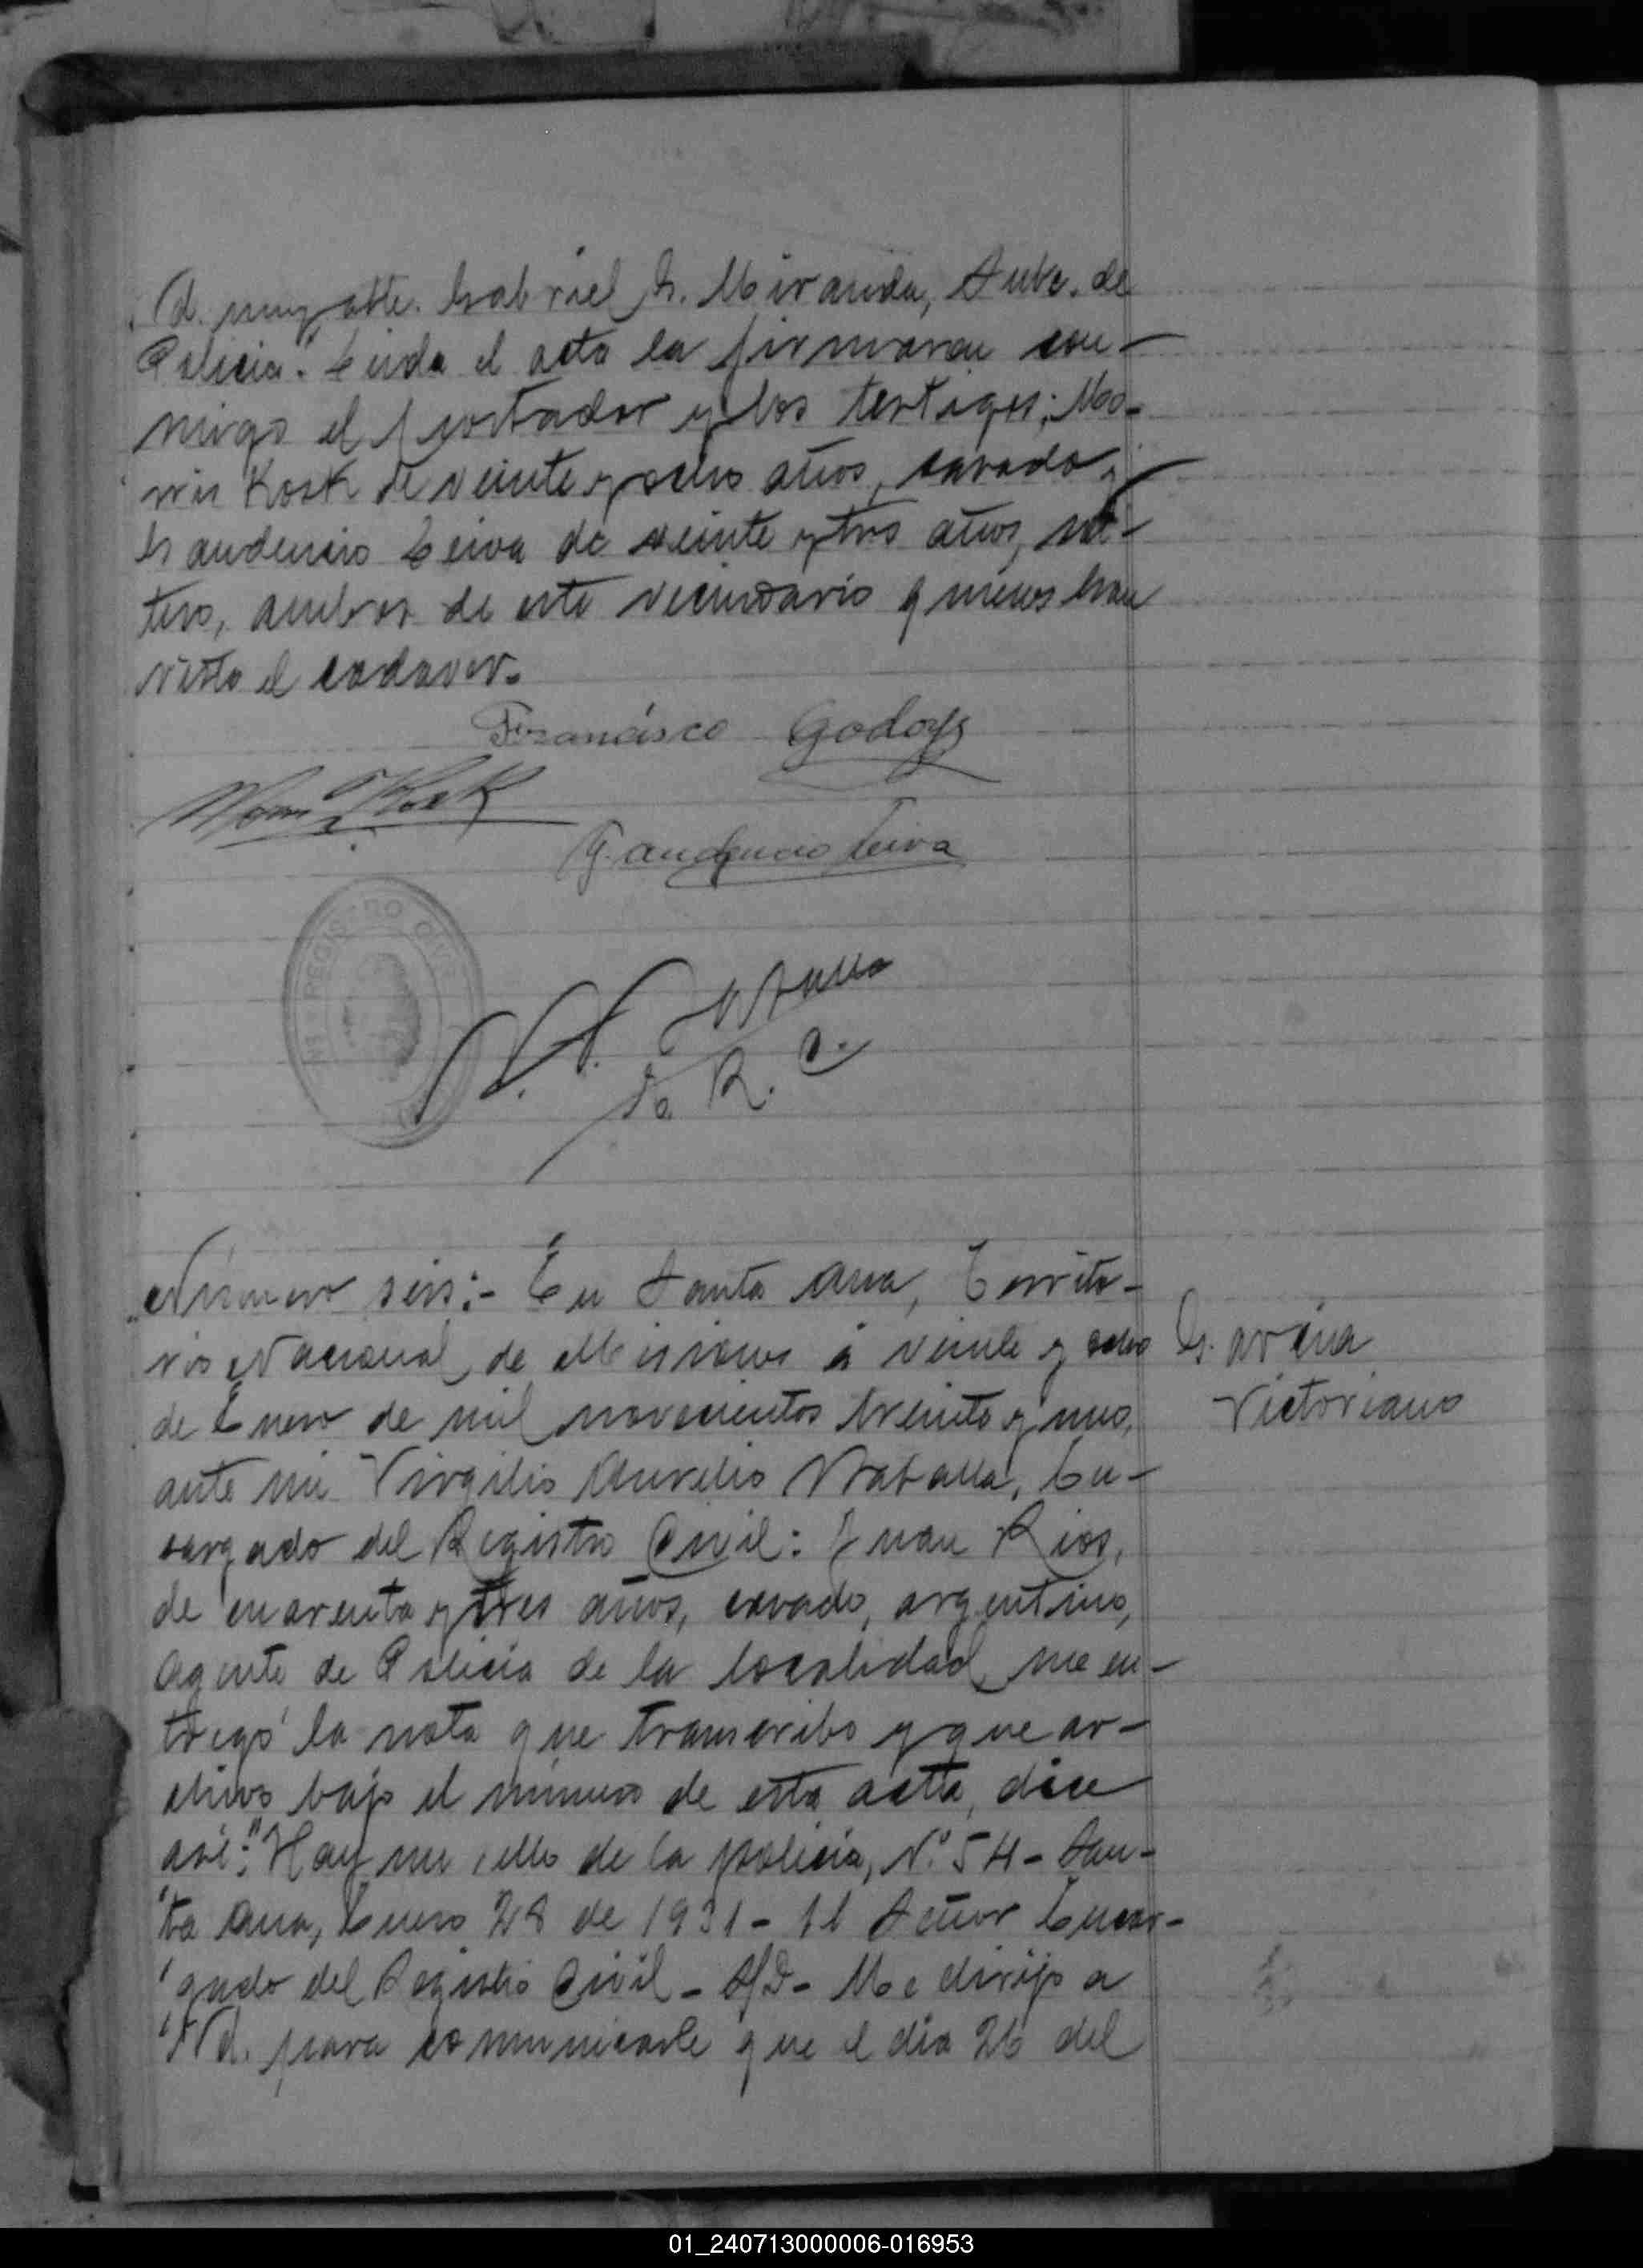 Vd. muy atte. Gabriel G. Miranda, Subc. de
Policia". Leida el acta la firmaron con-
migo el portador y los testigos: Mo-
ris Kosk de veinte y ocho años, casado y
Gaudencio Leiva de veinte y tres años, sol-
tero, ambos de este vecindario quienes han
visto el cadaver.
Francisco Godoy
Moris Kosk
Gaudencio Leiva
REGISTRO CIVIL
R. C.
Número seis:- En Santa Ana, Territo-
rio Nacional de Misiones á veinte y ocho
de Enero de mil novecientos treinta y uno,
ante mi Virgilio Aurelio, En-
cargado del Registro Civil: Juan Rios,
de cuarenta y tres años, casado, argentino,
agente de Policia de la localidad, me en-
tregó la nota que transcribo y que ar-
chivo bajo el número de esta acta, dice
asi: "Hay un sello de la policia, N.° 54 - San-
"ta Ana, Enero 28 de 1931 - Al Señor Encar-
"gado del Registro Civil - S/D - Me dirijo a
"Vd. para comunicarle que el dia 26 del
Garcia
Victoriano
01_240713000006-016953